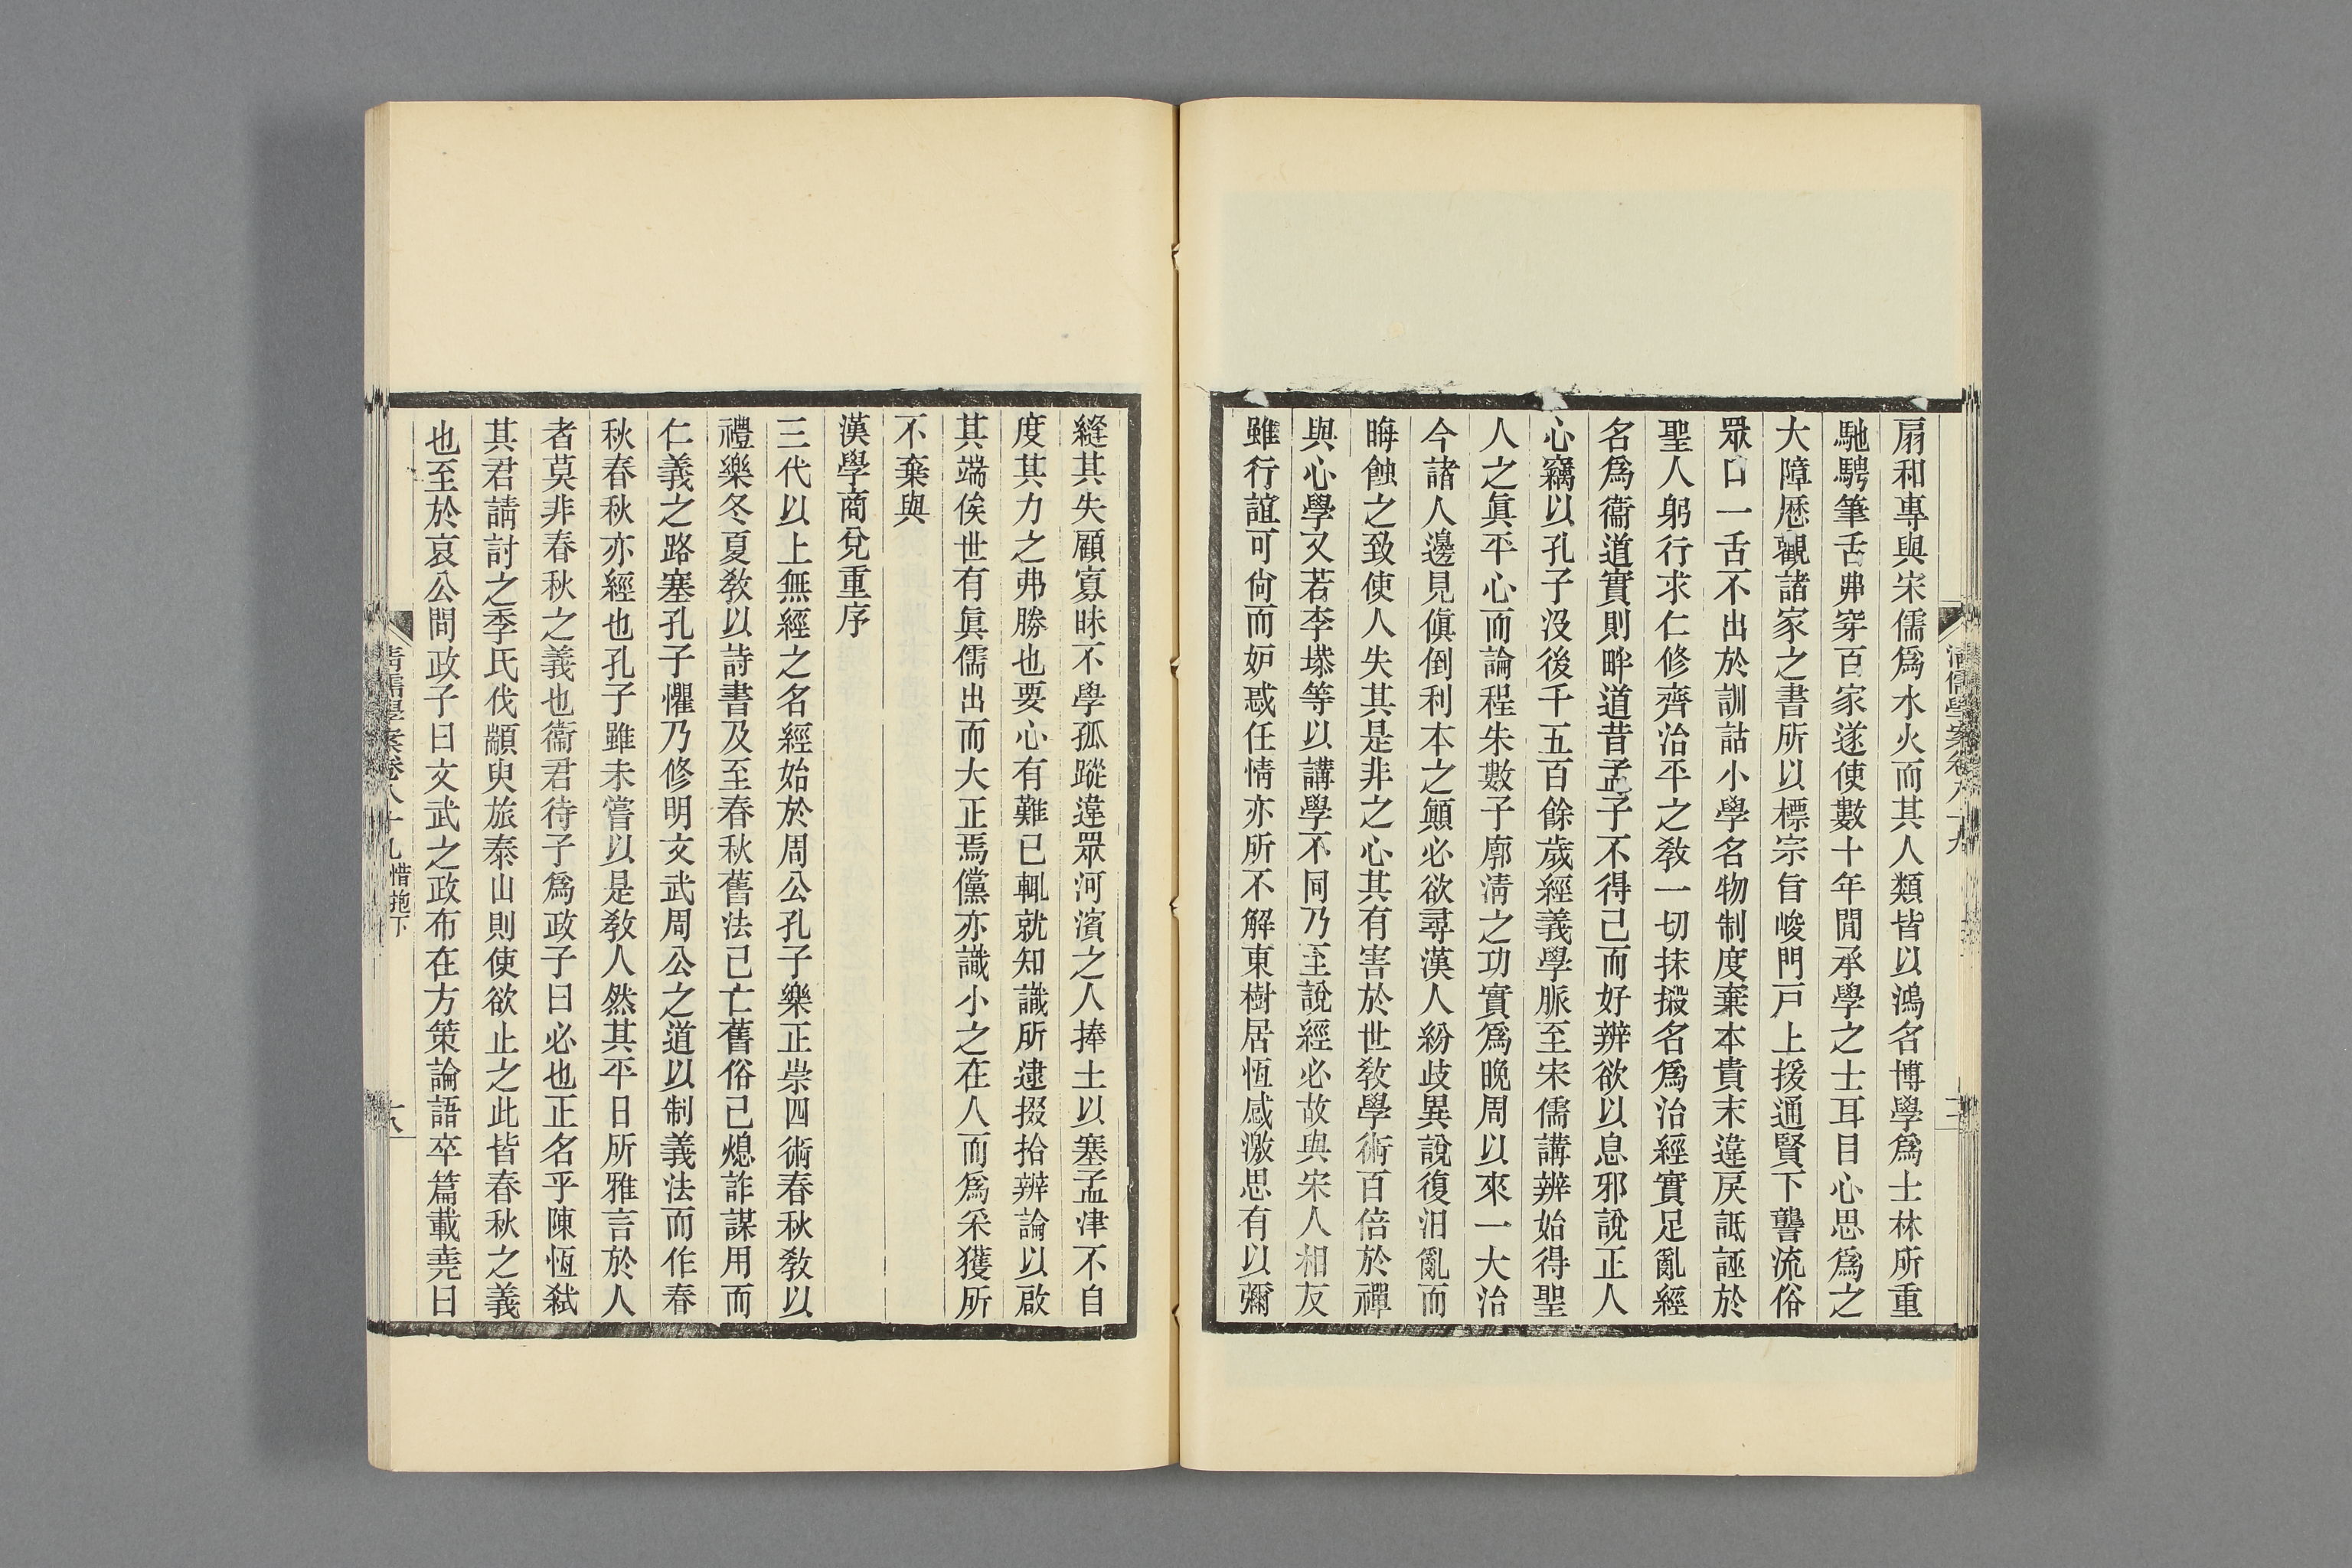 扇和專與宋儒爲水火而其人類皆以鴻名博學爲士林所重
馳騁筆舌弗穿百家遂使數十年閒承學之士耳目心思爲之
大障歷觀諸家之書所以標宗旨峻門戸上援通賢下讋流俗
眾口一舌不出於訓詁小學名物制度棄本貴末違戾詆誣於
聖人躬行求仁修齊治平之敎一切抹摋名爲治經實足亂經
名爲衞道實則畔道昔孟子不得已而好辨欲以息邪說正人
心竊以孔子沒後千五百餘歲經義學脈至宋儒講辨始得聖
人之眞平心而論程朱數子廓淸之功實爲晚周以來一大治
今諸人邊見傎倒利本之顚必欲尋漢人紛歧異說復汨亂而
晦蝕之致使人失其是非之心其有害於世敎學術百倍於禪
與心學又若李塨等以講學不同乃至說經必故與宋人相反
雖行誼可尙而妒惑任情亦所不解東樹居恆感激思有以彌
縫其失顧寡昧不學孤蹤違眾河濱之人捧土以塞孟津不自
度其力之弗勝也要心有難已輒就知識所逮掇拾辨論以啟
其端俟世有眞儒出而大正焉儻亦識小之在人而爲采獲所
不棄與
漢學商兌重序
三代以上無經之名經始於周公孔子樂正崇四術春秋敎以
禮樂冬夏敎以詩書及至春秋舊法已亡舊俗已熄詐謀用而
仁義之路塞孔子懼乃修明文武周公之道以制義法而作春
秋春秋亦經也孔子雖未嘗以是敎人然其平日所雅言於人
者莫非春秋之義也衞君待子爲政子曰必也正名乎陳恆弑
其君請討之季氏伐顓臾旅泰山則使欲止之此皆春秋之義
也至於哀公問政子曰文武之政布在方策論語卒篇載堯曰
清儒學案卷八十九 惜抱下